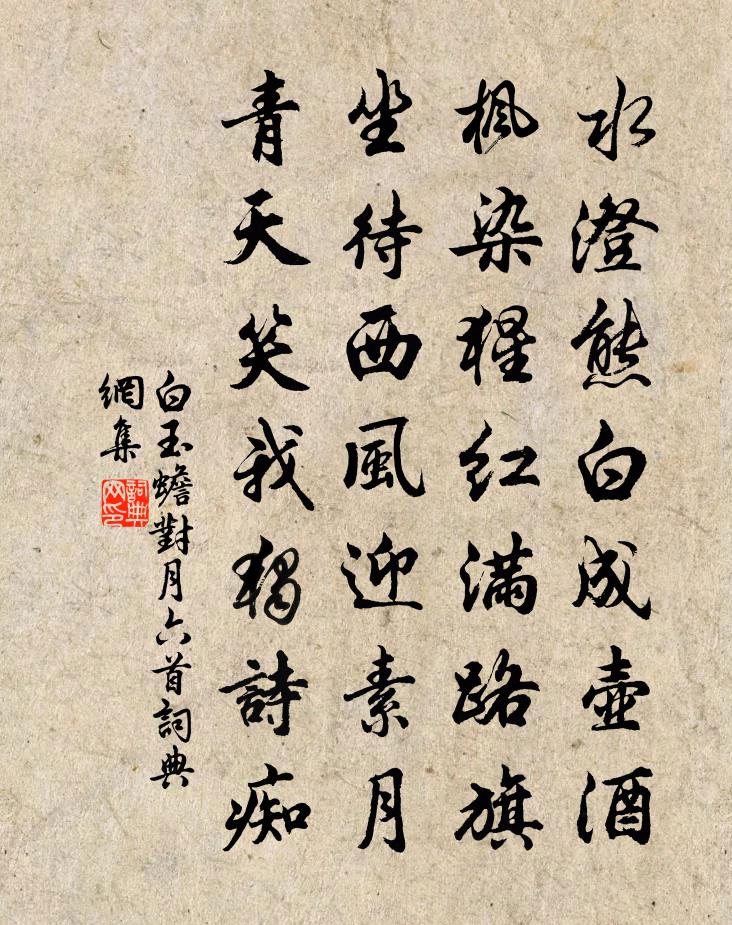 水澄熊白成壺酒
楓染猩紅滿路旗
坐待西風迎素月
青天笑我獨詩痴
白玉蟾對月六首詞典
網集
詞典
网印